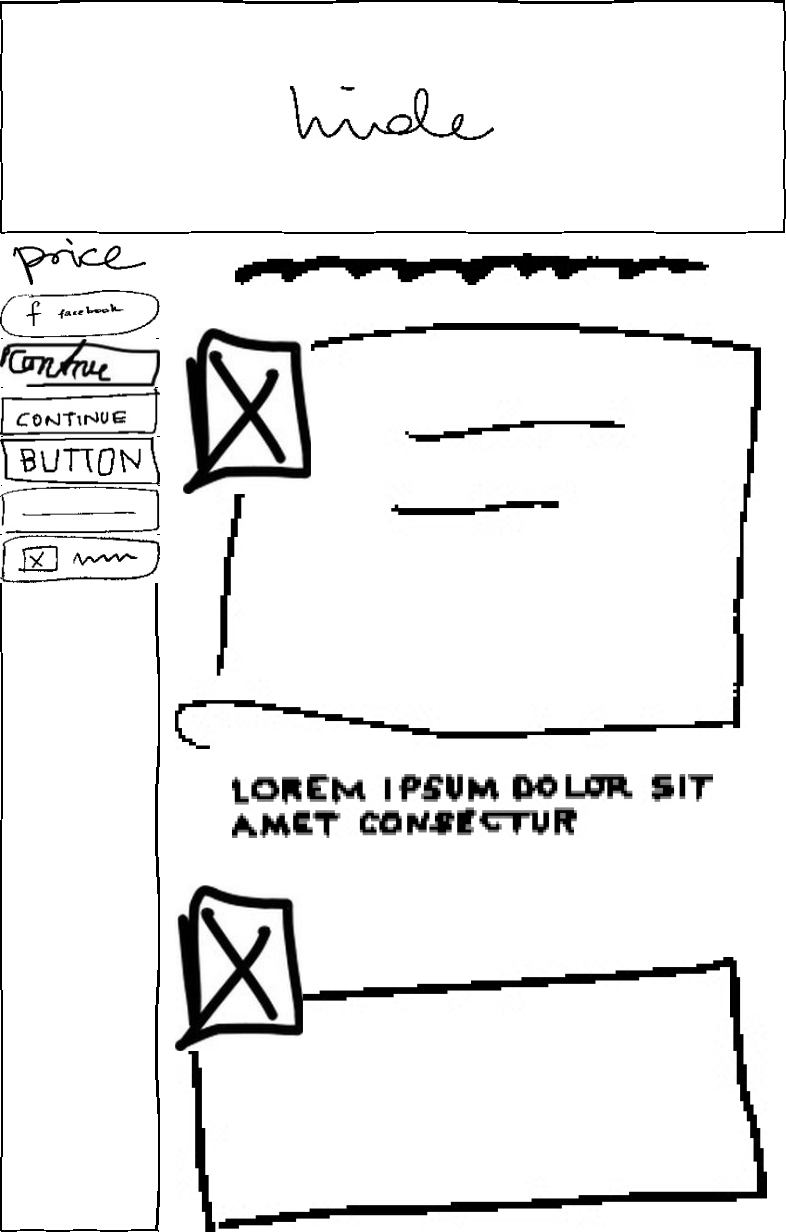 price
f facebook
Continue
CONTINUE
BUTTON
LOREM IPSUM DOLOR SIT
AMET CONSECTUR